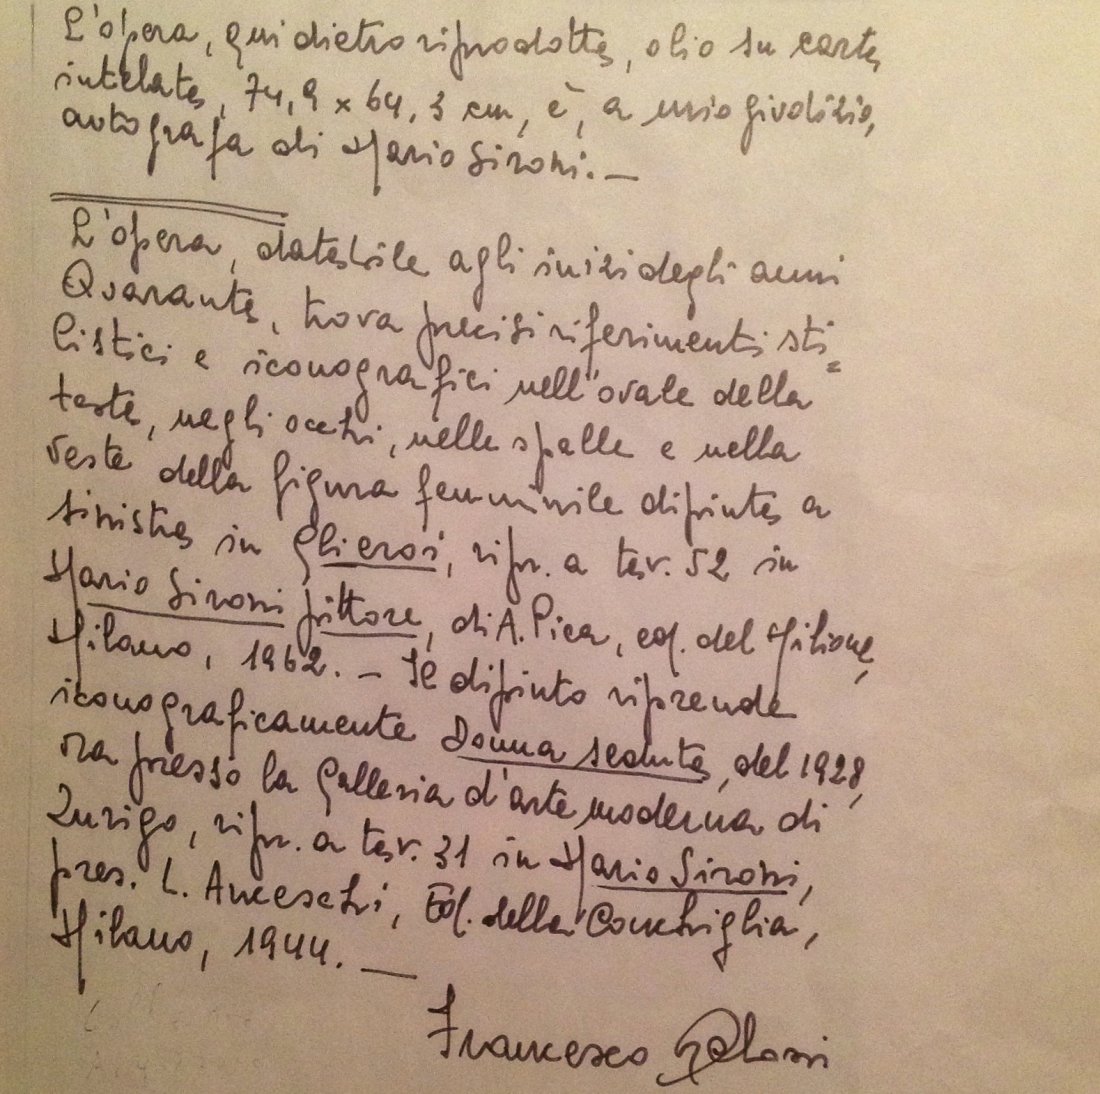 L'opera, qui dietro riprodotta, olio su carta
intelata, 74,9 x 64,3 cm, è, a mio giudizio,
autografa di Mario Sironi. —
L'opera, databile agli inizi degli anni
Quaranta, trova precisi riferimenti sti=
listici e iconografici nell'ovale della
testa, negli occhi, nelle spalle e nella
veste della figura femminile dipinta a
sinistra in Gli eroi, ripr. a tav. 52 in
Mario Sironi pittore, di A. Pica, ed. del Milione,
Milano, 1962. — Il dipinto riprende
iconograficamente Donna seduta, del 1928,
ora presso la Galleria d'arte moderna di
Zurigo, ripr. a tav. 31 in Mario Sironi,
pres. L. Anceschi, Ed. della Conchiglia,
Milano, 1944. —
Francesco